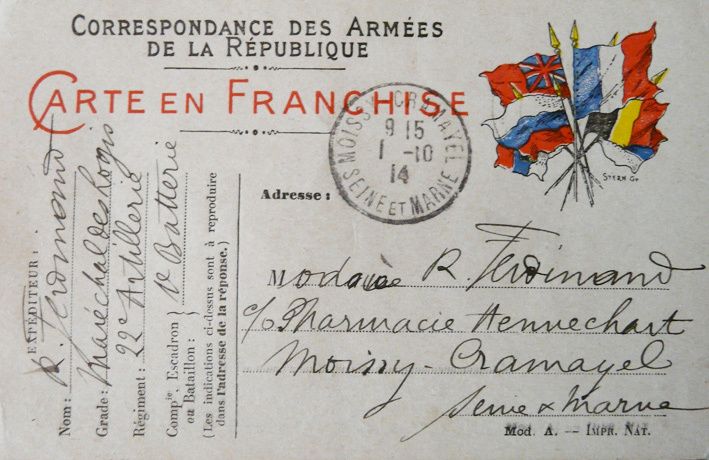 CORRESPONDANCE DES ARMÉES
DE LA RÉPUBLIQUE
CARTE EN FRANCHISE
MOISSY-CRAMAYEL
9 15
1 -10
14
SEINE ET MARNE
STERN Gr
Adresse :
Madame R. Ferdinand
c/o Pharmacie Hennechart
Moissy-Cramayel
Seine & Marne
Mod. A. — IMPR. NAT.
EXPÉDITEUR :
Nom : R. Ferdinand
Grade : Maréchal des Logis
Régiment : 22e Artillerie
Compie, Escadron
ou Bataillon : } V Batterie
(Les indications ci-dessus sont à reproduire
dans l'adresse de la réponse.)